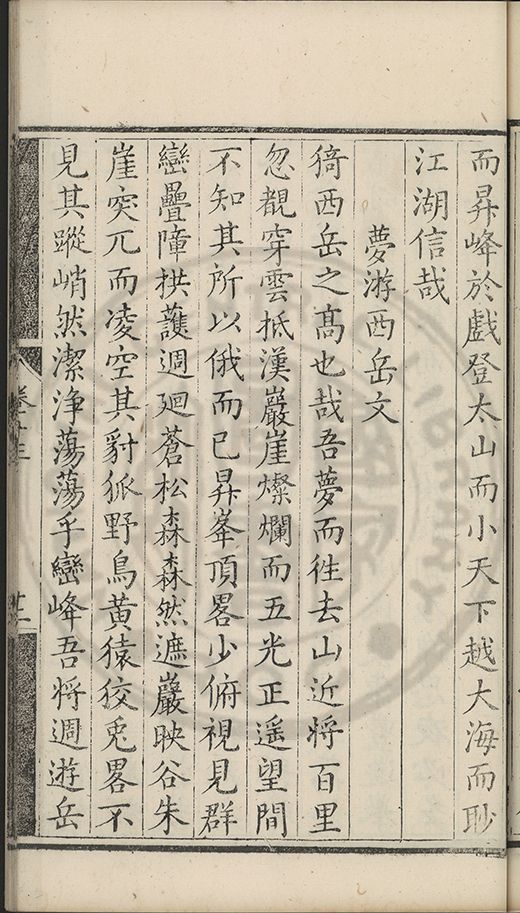 而昇峰於戲登太山而小天下越大海而眇
江湖信哉
夢游西岳文
猗西岳之髙也哉吾夢而徃去山近將百里
忽覩穿雲抵漢巖崖燦爛而五光正遥望間
不知其所以俄而已昇峯頂畧少俯視見群
巒疊障拱護週廻蒼松森森然遮巖映谷朱
崖突兀而凌空其豺狐野鳥黄猿狡兎畧不
見其蹤峭然潔净蕩蕩乎巒峰吾將週遊岳
卷十三
廿一